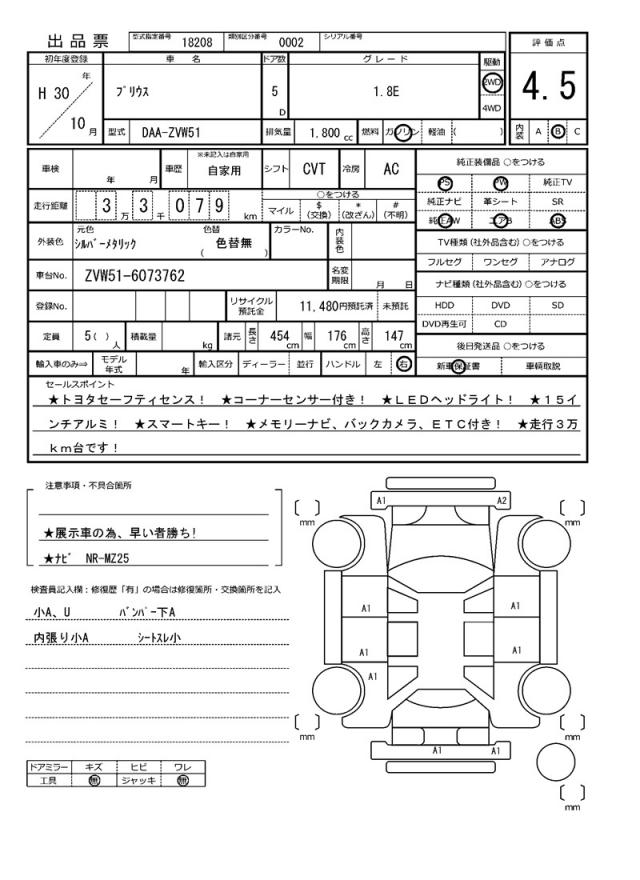 出品票 型式指定番号 18208 類別区分番号 0002 シリアル番号
評価点
4.5
内装 A B C
初年度登録 車名 ドア数 グレード 駆動
H 30 年 10 月
ﾌﾟﾘｳｽ 5 D 1.8E 2WD 4WD
型式 DAA-ZVW51 排気量 1.800 cc 燃料 ガソリン 軽油 ( )
車検 年 月 車歴 ※未記入は自家用 自家用 シフト CVT 冷房 AC
走行距離 3 万 3 千 0 7 9 km
○をつける
マイル $(交換) *(改ざん) #(不明)
外装色 元色 ｼﾙﾊﾞｰﾒﾀﾘｯｸ 色替 ( 色替無 ) カラーNo. 内装色
車台No. ZVW51-6073762 名変期限 月 日
登録No. リサイクル預託金 11,480円預託済 未預託
定員 5( )人 積載量 kg 諸元 長さ 454 cm 幅 176 cm 高さ 147 cm
輸入車のみ⇒ モデル年式 年 輸入区分 ディーラー 並行 ハンドル 左 右
純正装備品 ○をつける
PS PW 純正TV
純正ナビ 革シート SR
純正AW エアB ABS
TV種類 (社外品含む) ○をつける
フルセグ ワンセグ アナログ
ナビ種類 (社外品含む) ○をつける
HDD DVD SD
DVD再生可 CD
後日発送品 ○をつける
新車保証書 車輌取説
セールスポイント
★トヨタセーフティセンス！ ★コーナーセンサー付き！ ★ＬＥＤヘッドライト！ ★１５イ
ンチアルミ！ ★スマートキー！ ★メモリーナビ、バックカメラ、ＥＴＣ付き！ ★走行３万
ｋｍ台です！
注意事項・不具合箇所
★展示車の為、早い者勝ち!
★ﾅﾋﾞ NR-MZ25
検査員記入欄：修復歴「有」の場合は修復箇所・交換箇所を記入
小A、U ﾊﾞﾝﾊﾟｰ下A
内張り小A ｼｰﾄｽﾚ小
ドアミラー キズ ヒビ ワレ
工具 無 ジャッキ 無
A1 A2
[ ] mm [ ] mm
A1 A1
A1 A1
A1
[ ] mm [ ] mm
A1 A1
[ ] mm